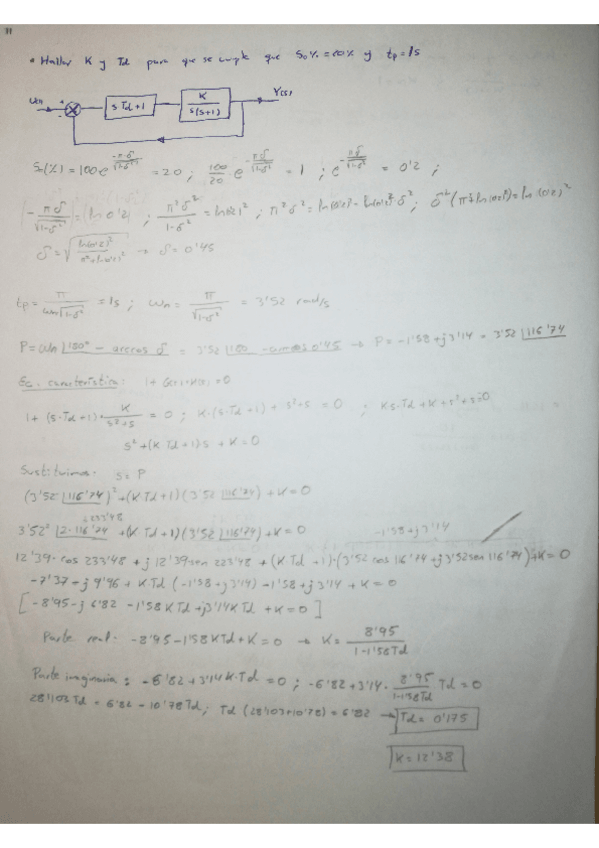 • Hallar K y Td para que se cumpla que So%=20% y tp=1s
U(s) + - sTd+1 K/s(s+1) Y(s)
S(%)=100e^(-πδ/√(1-δ²)) = 20 ; 100/20 · e^(-πδ/√(1-δ²)) = 1 ; e^(-πδ/√(1-δ²)) = 0'2 ;
(-πδ/√(1-δ²))=(ln 0'2) ; π²δ²/(1-δ²) = ln(0'2)² ; π²δ² = ln(0'2)² - ln(0'2)²δ² ;
δ=√(ln(0'2)²/(π²+ln(0'2)²)) → δ=0'45
tp = π/(ωn√(1-δ²)) = 1s ; ωn = π/√(1-δ²) = 3'52 rad/s
P=ωn |180° - arccos δ = 3'52 |180 - arccos 0'45 → P=-1'58+j3'14 = 3'52 |116'74
Ec. característica: 1+G(s)·H(s)=0
1+(s·Td+1)· K/(s²+s) = 0 ; K·(s·Td+1)+s²+s=0 ; K·s·Td+K+s²+s=0
s²+(K·Td+1)s+K=0
Sustituimos: s=P
(3'52 |116'74)²+(K·Td+1)(3'52 |116'74)+K=0
233'48
3'52² |2·116'74 +(K·Td+1)(3'52 |116'74)+K=0
-1'58+j3'14
12'39·cos 233'48 + j 12'39 sen 233'48 + (K·Td+1)·(3'52 cos 116'74+j3'52sen 116'74)+K=0
-7'37-j9'96+K·Td(-1'58+j3'14)-1'58+j3'14+K=0
[-8'95-j6'82-1'58KTd+j3'14KTd+K=0]
Parte real: -8'95-1'58KTd+K=0 → K= 8'95/(1-1'58Td)
Parte imaginaria: -6'82+3'14K·Td=0 ; -6'82+3'14· 8'95/(1-1'58Td) Td=0
28'103Td=6'82-10'78Td; Td(28'103+10'78)=6'82 → Td=0'175
K=12'38